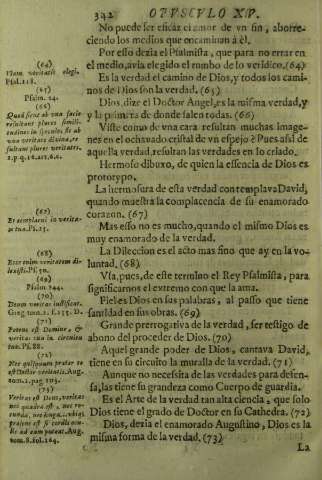 342 OPVSCVLO XV.
No puede ser eficàz el amor de vn fin, aborre-
ciendo los medios que encaminan à èl.
Por esso dezia el Psalmista, que para no errar en
el medio, avia elegido el rumbo de lo veridico. (64)
Es la verdad el camino de Dios, y todos los cami-
nos de Dios son la verdad. (65)
Dios, dize el Doctor Angel, es la misma verdad, y
y la primera de donde salen todas. (66)
Viste como de vna cara resultan muchas image-
nes en el ochavado cristal de vn espejo? Pues assi de
aquella verdad, resultan las verdades en lo criado.
Hermoso dibuxo, de quien la essencia de Dios es
prototypo.
La hermosura de esta verdad contemplava David,
quando muestra la complacencia de su enamorado
corazon. (67)
Mas esso no es mucho, quando el mismo Dios es
muy enamorado de la verdad.
La Dileccion es el acto mas fino que ay en la vo-
luntad. (68)
Vsa, pues, de este termino el Rey Psalmista, para
significarnos el extremo con que la ama.
Fiel es Dios en sus palabras, al passo que tiene
santidad en sus obras. (69)
Grande prerrogativa de la verdad, ser testigo de
abono del proceder de Dios. (70)
Aquel grande poder de Dios, cantava David,
tiene en su circuito la muralla de la verdad. (71)
Aunque no necessita de las verdades para defen-
sa, las tiene su grandeza como Cuerpo de guardia.
Es el Arte de la verdad tan alta ciencia, que solo
Dios tiene el grado de Doctor en su Cathedra. (72)
Dios, dezia el enamorado Augustino, Dios es la
misma forma de la verdad. (73)
La
(64)
Viam veritatis elegi.
Psal. 118.
(65)
Psalm. 24.
(66)
Quod sicut ab vna facie
resultant plures simili-
tudines in speculo, sic ab
vna veritate divina, re-
sultant plures veritates.
1. p. q. 16. art. 6. c.
(67)
Et complacui in verita-
te tua. Ps. 25.
(68)
Ecce enim veritatem di-
lexisti. Ps. 50.
(69)
Psalm. 144.
(70)
Deum veritas iustificat.
(71)
Potens est Domine, &
veritas tua in circuitu
tuo. Ps. 88.
(72)
(73)
Veritas est Deus, veritas